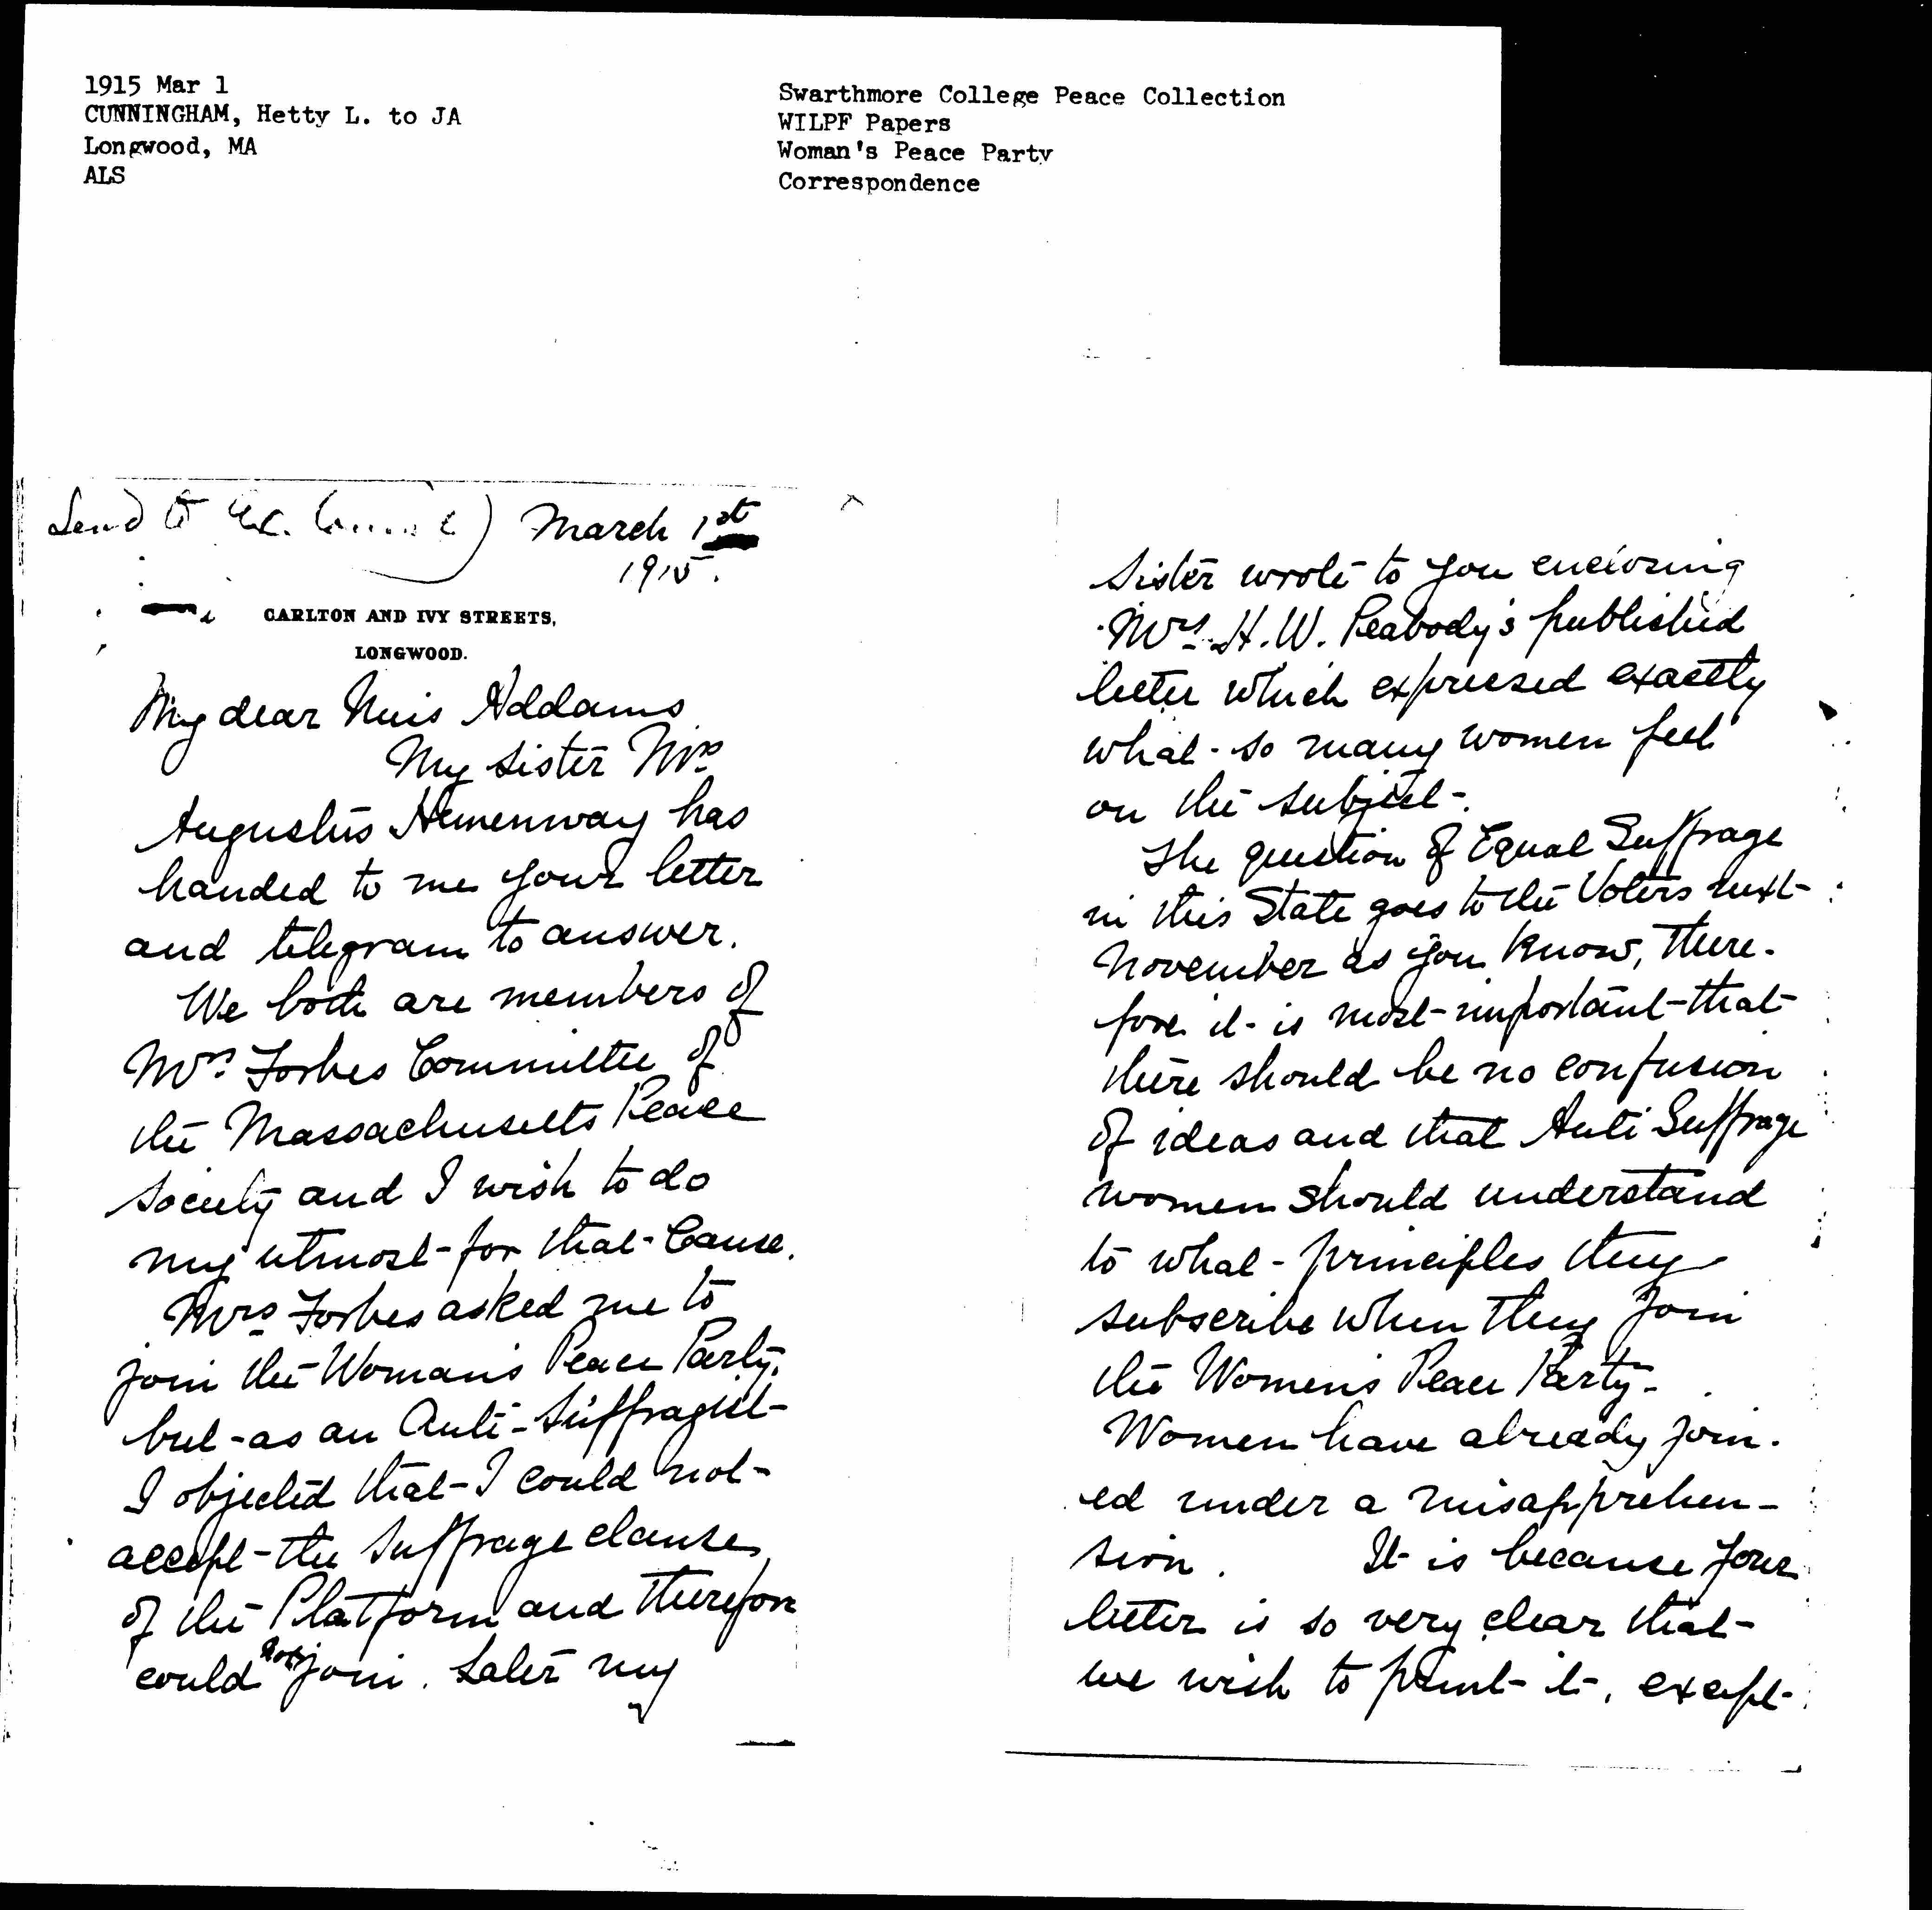 1915 Mar 1
CUNNINGHAM, Hetty L. to JA
Longwood, MA
ALS
Swarthmore College Peace Collection
WILPF Papers
Woman's Peace Party
Correspondence
Send to Ex.
March 1st
1915.
CARLTON AND IVY STREETS,
LONGWOOD.
My dear Miss Addams
My sister Mrs
Augustus Hemenway has
handed to me your letter
and telegram to answer.
We both are members of
Mrs Forbes Committee of
the Massachusetts Peace
Society and I wish to do
my utmost for that Cause.
Mrs Forbes asked me to
join the Woman's Peace Party,
but as an Anti-Suffragist
I objected that I could not
accept the Suffrage clause
of the Platform and therefore
could not join. Later my
sister wrote to you enclosing
Mrs H. W. Peabody's published
letter which expressed exactly
what so many women feel
on the subject.
The question of Equal Suffrage
in this State goes to the Voters next
November as you know, there-
fore it is most important that
there should be no confusion
of ideas and that Anti Suffrage
women should understand
to what principles they
subscribe when they join
the Women's Peace Party.
Women have already join-
ed under a misapprehen-
sion. It is because your
letter is so very clear that
we wish to print it, except